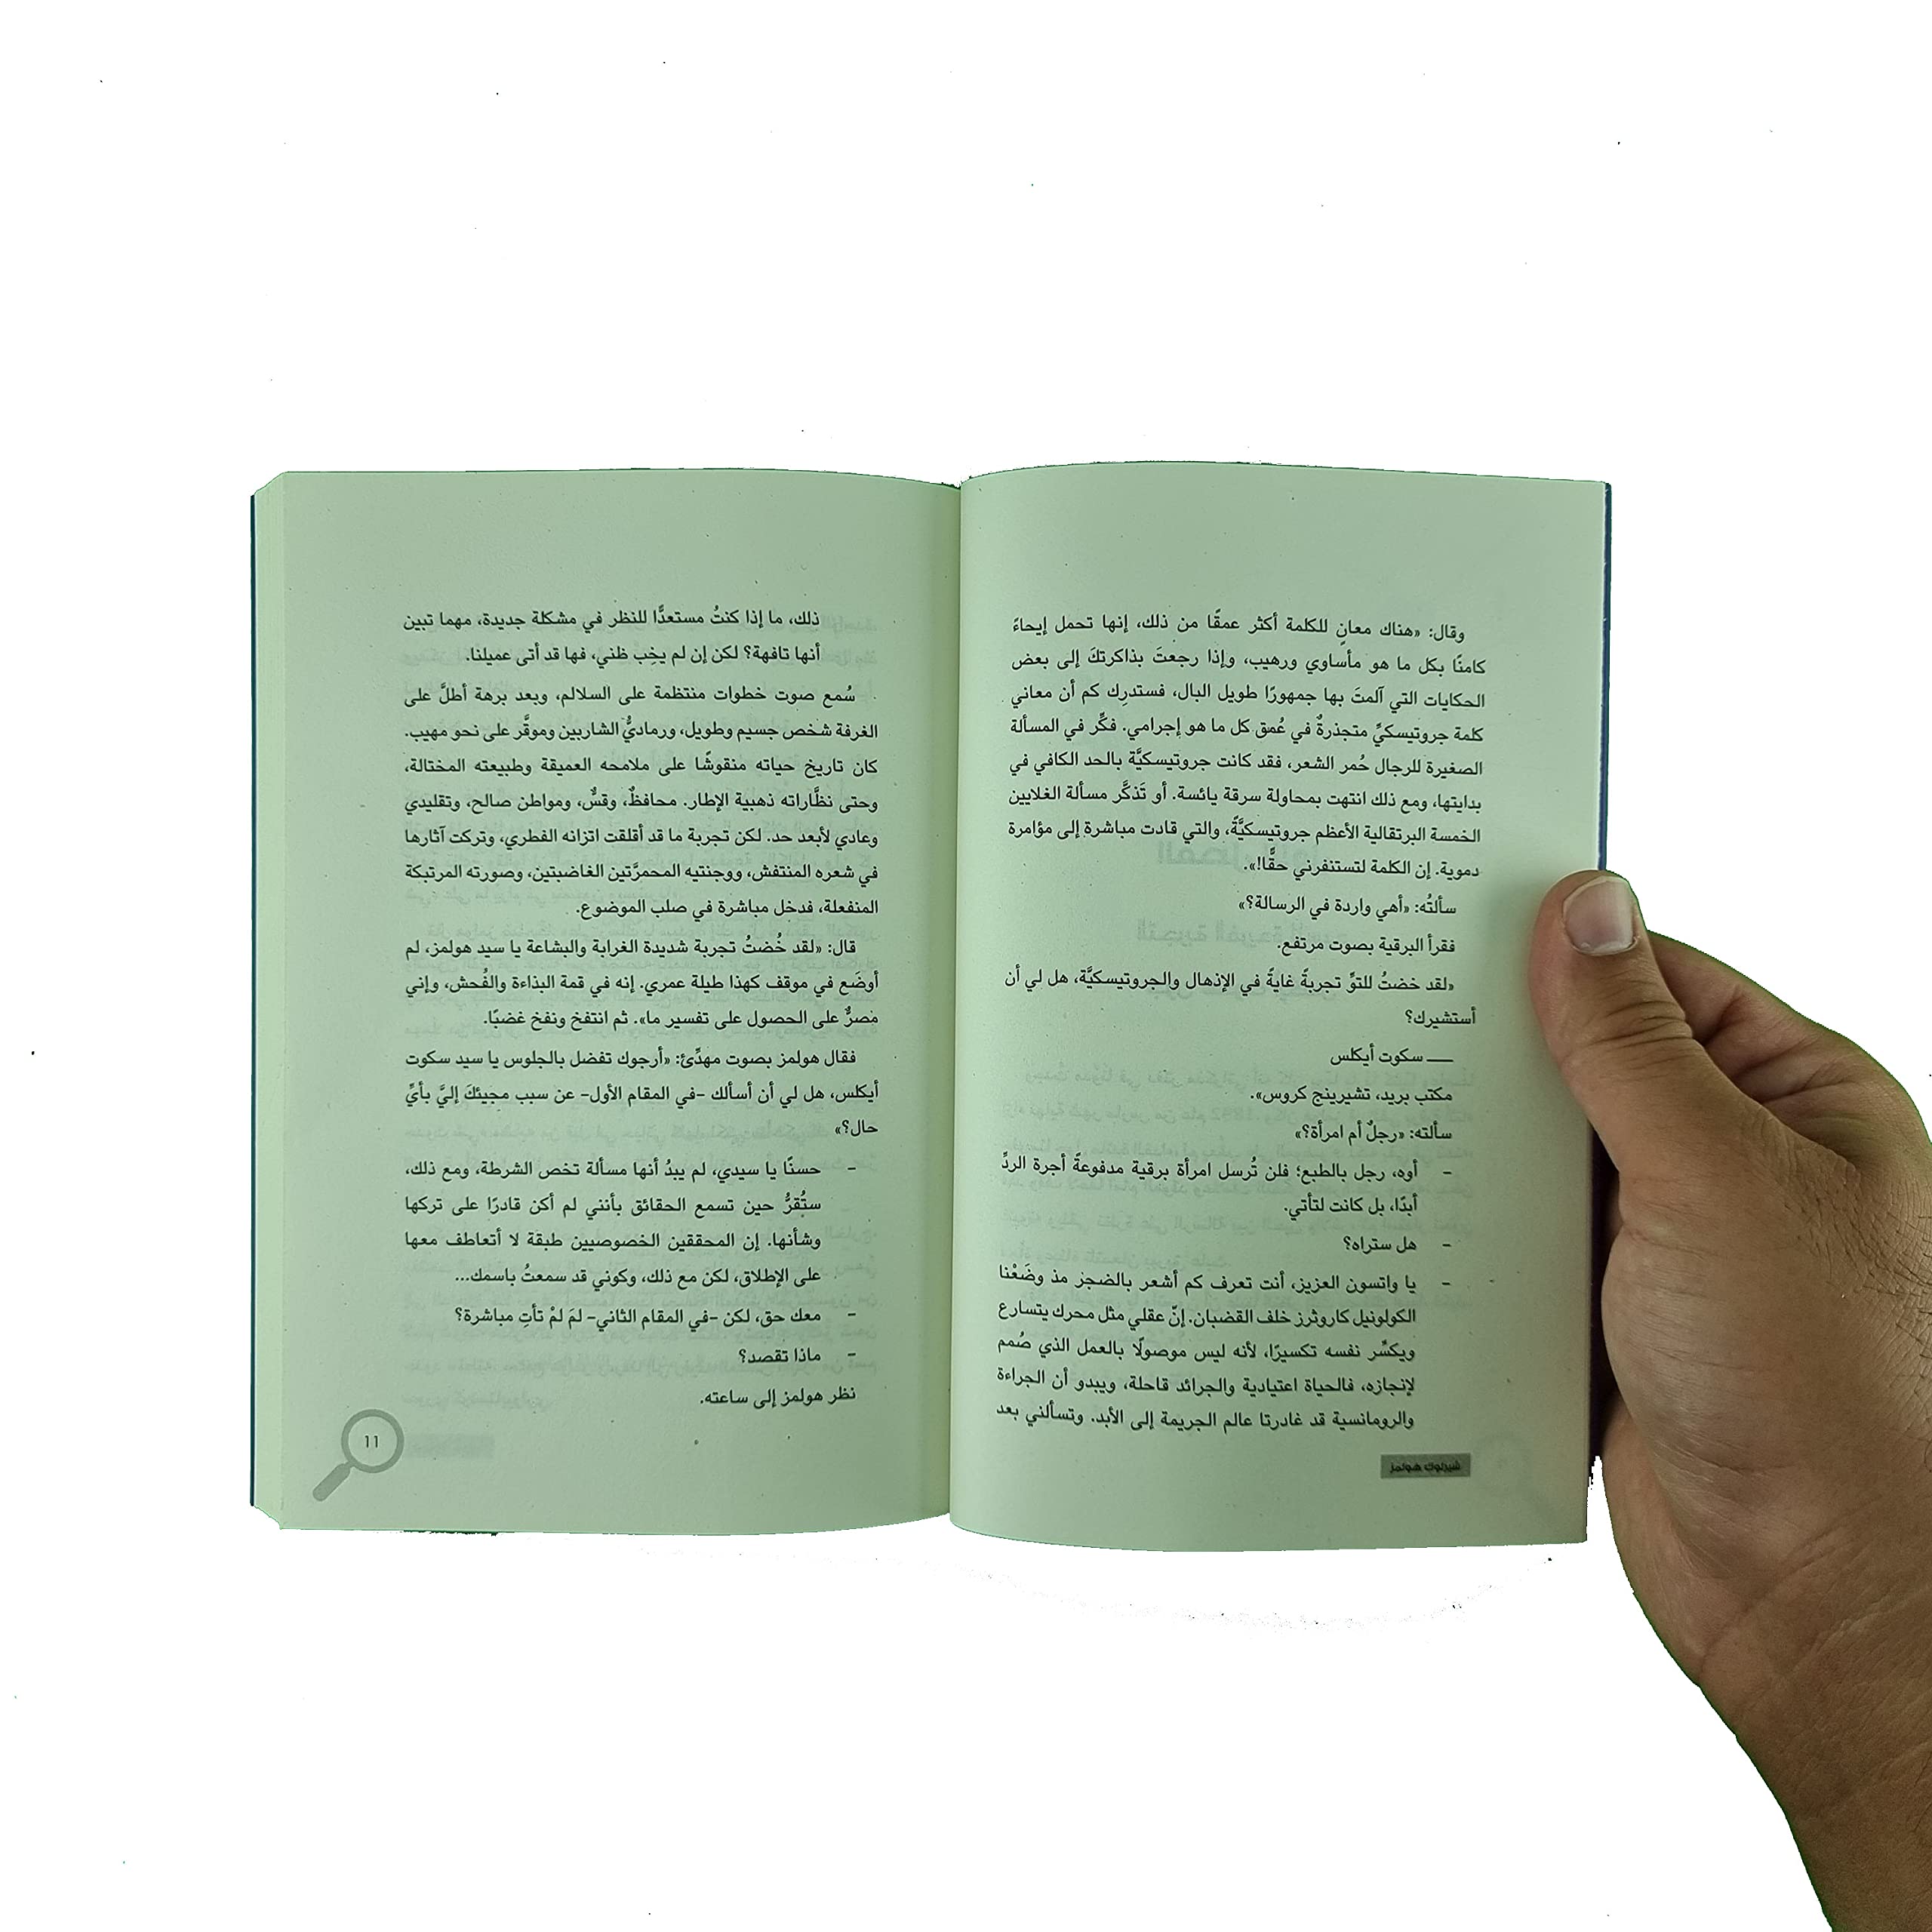 وقال: «هناك معانٍ للكلمة أكثر عمقًا من ذلك، إنها تحمل إيحاءً
كامنًا بكل ما هو مأساوي ورهيب، وإذا رجعتَ بذاكرتكَ إلى بعض
الحكايات التي آلمتَ بها جمهورًا طويل البال، فستدرِك كم أن معاني
كلمة جروتيسكيٍّ متجذرةٌ في عُمق كل ما هو إجرامي. فكِّر في المسألة
الصغيرة للرجال حُمر الشعر، فقد كانت جروتيسكيَّة بالحد الكافي في
بدايتها، ومع ذلك انتهت بمحاولة سرقة يائسة. أو تَذكَّر مسألة الغلايين
الخمسة البرتقالية الأعظم جروتيسكيَّةً، والتي قادت مباشرة إلى مؤامرة
دموية. إن الكلمة لتستنفرني حقًّا!».
سألتُه: «أهي واردة في الرسالة؟»
فقرأ البرقية بصوت مرتفع.
«لقد خضتُ للتوِّ تجربةً غايةً في الإذهال والجروتيسكيَّة، هل لي أن
أستشيرك؟
ـــــ سكوت أيكلس
مكتب بريد، تشيرينج كروس».
سألته: «رجلٌ أم امرأة؟»
- أوه، رجل بالطبع؛ فلن تُرسل امرأة برقية مدفوعةً أجرة الردِّ
أبدًا، بل كانت لتأتي.
- هل ستراه؟
- يا واتسون العزيز، أنت تعرف كم أشعر بالضجز مذ وضَعْنا
الكولونيل كاروثرز خلف القضبان. إنّ عقلي مثل محرك يتسارع
ويكسِّر نفسه تكسيرًا، لأنه ليس موصولًا بالعمل الذي صُمم
لإنجازه، فالحياة اعتيادية والجرائد قاحلة، ويبدو أن الجراءة
والرومانسية قد غادرتا عالم الجريمة إلى الأبد. وتسألني بعد
شيرلوك هولمز
ذلك، ما إذا كنتُ مستعدًّا للنظر في مشكلة جديدة، مهما تبين
أنها تافهة؟ لكن إن لم يخِب ظني، فها قد أتى عميلنا.
سُمع صوت خطوات منتظمة على السلالم، وبعد برهة أطلَّ على
الغرفة شخص جسيم وطويل، ورماديُّ الشاربين وموقَّر على نحو مهيب.
كان تاريخ حياته منقوشًا على ملامحه العميقة وطبيعته المختالة،
وحتى نظَّاراته ذهبية الإطار. محافظٌ، وقسٌّ، ومواطن صالح، وتقليدي
وعادي لأبعد حد. لكن تجربة ما قد أقلقت اتزانه الفطري، وتركت آثارها
في شعره المنتفش، ووجنتيه المحمرَّتين الغاضبتين، وصورته المرتبكة
المنفعلة، فدخل مباشرة في صلب الموضوع.
قال: «لقد خُضتُ تجربة شديدة الغرابة والبشاعة يا سيد هولمز، لم
أوضَع في موقف كهذا طيلة عمري. إنه في قمة البذاءة والفُحش، وإني
مُصرٌّ على الحصول على تفسير ما». ثم انتفخ ونفخ غضبًا.
فقال هولمز بصوت مهدِّئ: «أرجوك تفضل بالجلوس يا سيد سكوت
أيكلس، هل لي أن أسألك -في المقام الأول- عن سبب مجيئكَ إليَّ بأيِّ
حال؟»
- حسنًا يا سيدي، لم يبدُ أنها مسألة تخص الشرطة، ومع ذلك،
ستُقرُّ حين تسمع الحقائق بأنني لم أكن قادرًا على تركها
وشأنها. إن المحققين الخصوصيين طبقة لا أتعاطف معها
على الإطلاق، لكن مع ذلك، وكوني قد سمعتُ باسمك...
- معك حق، لكن -في المقام الثاني- لمَ لمْ تأتِ مباشرة؟
- ماذا تقصد؟
نظر هولمز إلى ساعته.
11